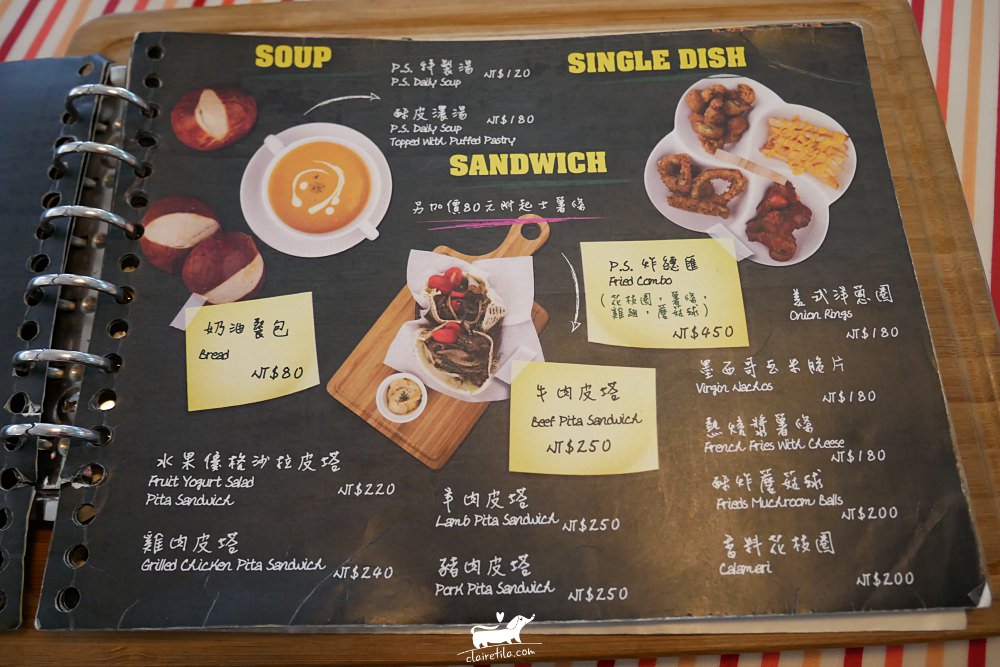 SOUP
P.S. 特製湯 NT$120
P.S. Daily Soup
酥皮濃湯 NT$180
P.S. Daily Soup
Topped With Puffed Pastry
奶油餐包
Bread
NT$80
SANDWICH
另加價80元附起士薯條
牛肉皮塔
Beef Pita Sandwich
NT$250
水果優格沙拉皮塔
Fruit Yogurt Salad NT$220
Pita Sandwich
雞肉皮塔
Grilled Chicken Pita Sandwich NT$240
羊肉皮塔
Lamb Pita Sandwich NT$250
豬肉皮塔
Pork Pita Sandwich NT$250
SINGLE DISH
P.S. 炸總匯
Fried Combo
(花枝圈,薯條,
雞翅,蘑菇球)
NT$450
美式洋蔥圈
Onion Rings
NT$180
墨西哥玉米脆片
Virgin Nachos
NT$180
熱燒漿薯條
French Fries With Cheese
NT$180
酥炸蘑菇球
Frieds Muchroom Balls
NT$200
香料花枝圈
Calamari
NT$200
clairetila.com